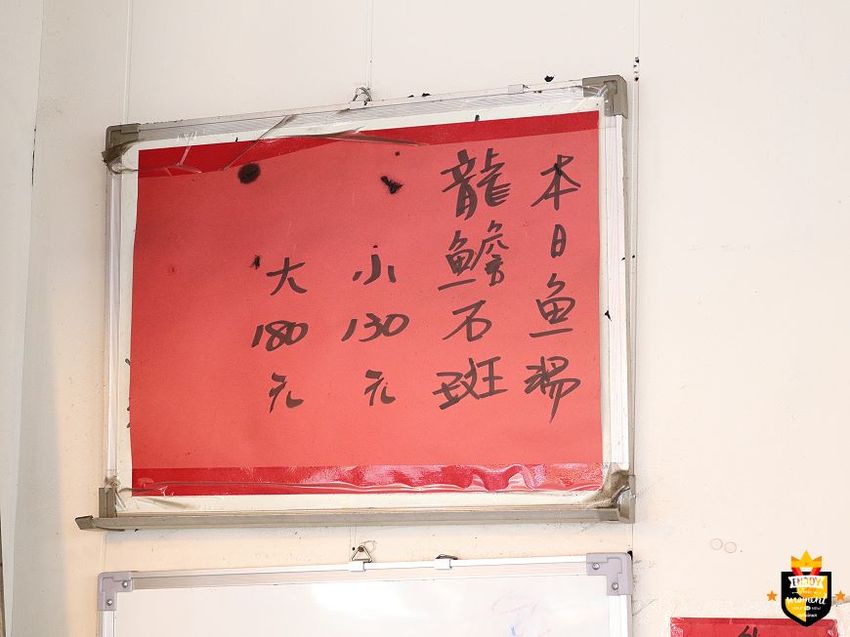 本日魚湯
龍石斑
小130元
大180元
ENJOY
moment